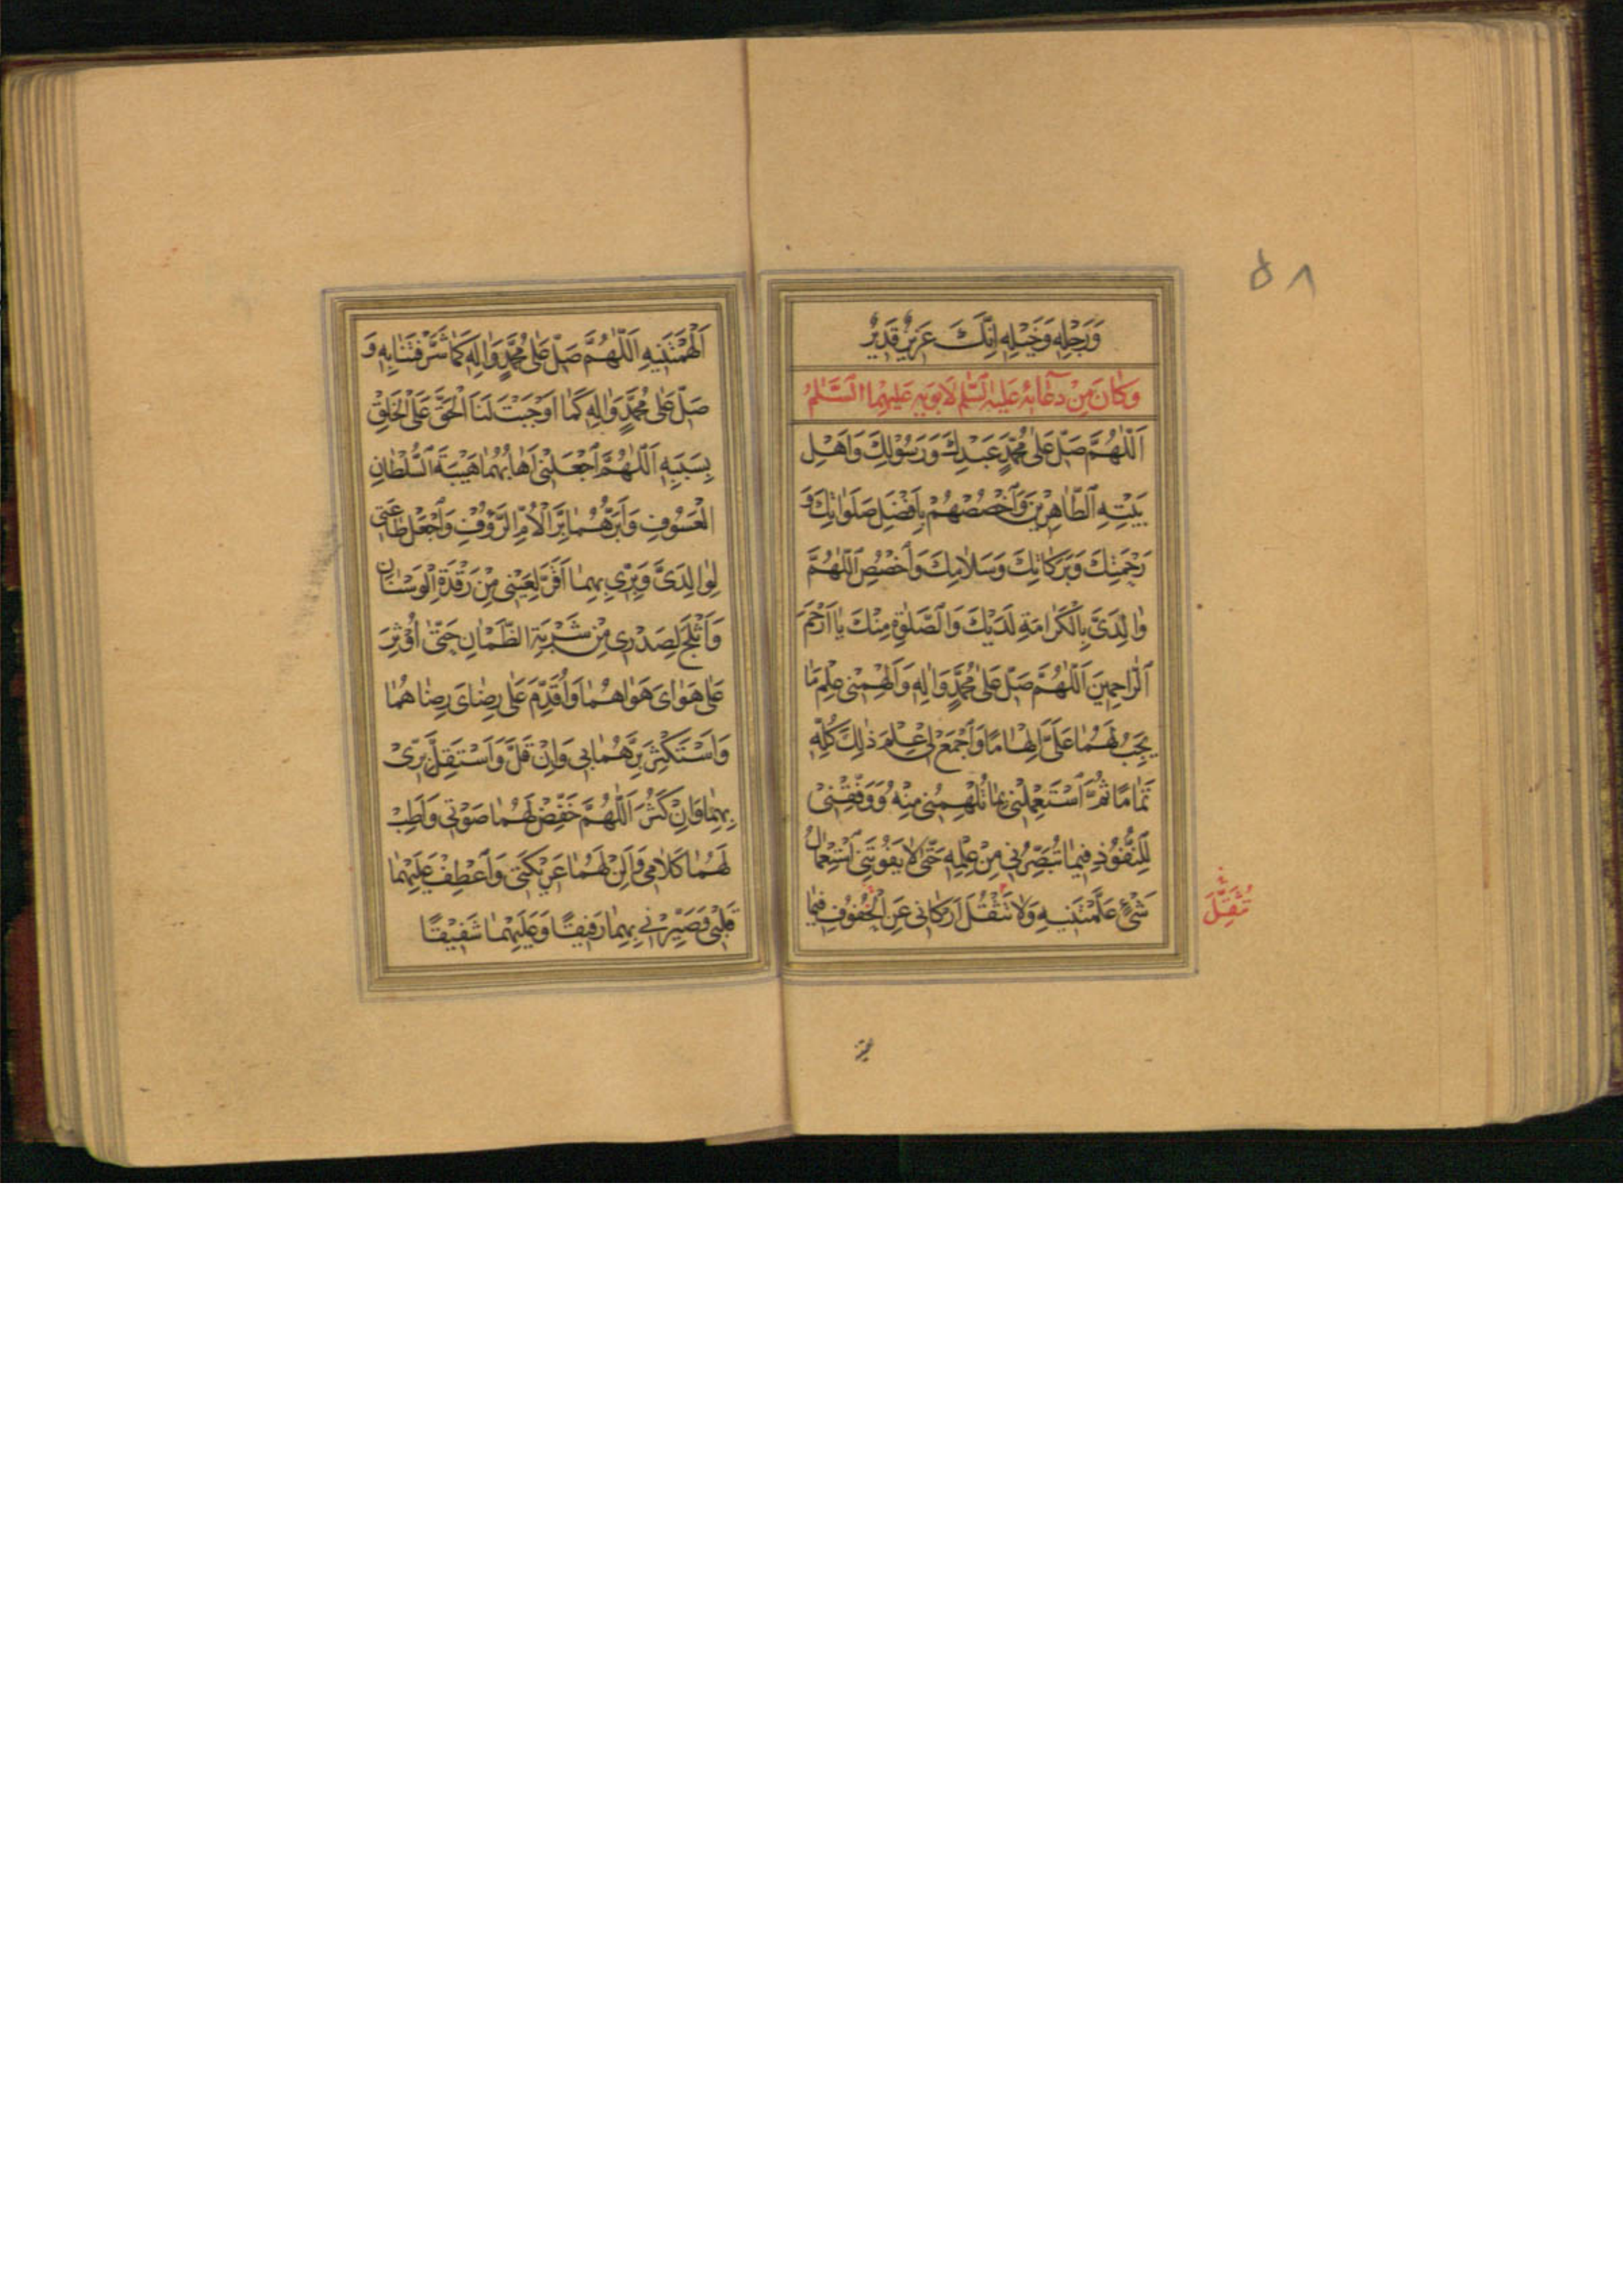 ۵۸
وَرَجِلِهِ وَخَيْلِهِ اِنَّكَ عَزِيزٌ قَدِيرٌ
وَكَانَ مِنْ دُعَائِهِ عَلَيْهِ السَّلٰمُ لِاَبَوَيْهِ عَلَيْهِمَا السَّلٰمُ
اَللّٰهُمَّ صَلِّ عَلٰى مُحَمَّدٍ عَبْدِكَ وَرَسُوْلِكَ وَاَهْلِ
بَيْتِهِ الطَّاهِرِيْنَ وَاخْصُصْهُمْ بِاَفْضَلِ صَلَوَاتِكَ وَ
رَحْمَتِكَ وَبَرَكَاتِكَ وَسَلَامِكَ وَاخْصُصِ اللّٰهُمَّ
وَالِدَىَّ بِالْكَرَامَةِ لَدَيْكَ وَالصَّلٰوةِ مِنْكَ يَا اَرْحَمَ
الرَّاحِمِينَ اَللّٰهُمَّ صَلِّ عَلٰى مُحَمَّدٍ وَاٰلِهِ وَاَلْهِمْنِى عِلْمَ مَا
يَجِبُ لَهُمَا عَلَىَّ اِلْهَامًا وَاجْمَعْ لِى عِلْمَ ذٰلِكَ كُلِّهِ
تَمَامًا ثُمَّ اسْتَعْمِلْنِى بِمَا تُلْهِمُنِى مِنْهُ وَوَفِّقْنِىْ
لِلنُّفُوْذِ فِيمَا تُبَصِّرُنِى مِنْ عِلْمِهِ حَتّٰى لَا يَفُوتَنِى اسْتِعْمَالُ
شَىْءٍ عَلَّمْتَنِيهِ وَلَا تَثْقُلَ اَرْكَانِى عَنِ الْحُفُوْفِ فِيمَا
تُثَقِّلَ
اَلْهَمْتَنِيهِ اَللّٰهُمَّ صَلِّ عَلٰى مُحَمَّدٍ وَاٰلِهِ كَمَا شَرَّفْتَنَا بِهِ وَ
صَلِّ عَلٰى مُحَمَّدٍ وَاٰلِهِ كَمَا اَوْجَبْتَ لَنَا الْحَقَّ عَلَى الْخَلْقِ
بِسَبَبِهِ اَللّٰهُمَّ اجْعَلْنِى اَهَابُهُمَا هَيْبَةَ السُّلْطَانِ
الْعَسُوفِ وَاَبَرُّهُمَا بِرَّ الْاُمِّ الرَّؤُفِ وَاجْعَلْ طَاعَتِى
لِوَالِدَىَّ وَبِرِّى بِهِمَا اَقَرَّ لِعَيْنِى مِنْ رَقْدَةِ الْوَسْنَانِ
وَاَثْلَجَ لِصَدْرِى مِنْ شَرْبَةِ الظَّمْاٰنِ حَتّٰى اُوْثِرَ
عَلٰى هَوَاىَ هَوَاهُمَا وَاُقَدِّمَ عَلٰى رِضَاىَ رِضَاهُمَا
وَاَسْتَكْثِرَ بِرَّهُمَا بِى وَاِنْ قَلَّ وَاَسْتَقِلَّ بِرِّىْ
بِهِمَا وَاِنْ كَثُرَ اَللّٰهُمَّ خَفِّضْ لَهُمَا صَوْتِى وَاَطِبْ
لَهُمَا كَلَامِى وَاَلِنْ لَهُمَا عَرِيْكَتِى وَاعْطِفْ عَلَيْهِمَا
قَلْبِى وَصَيِّرْنِى بِهِمَا رَفِيْقًا وَعَلَيْهِمَا شَفِيْقًا